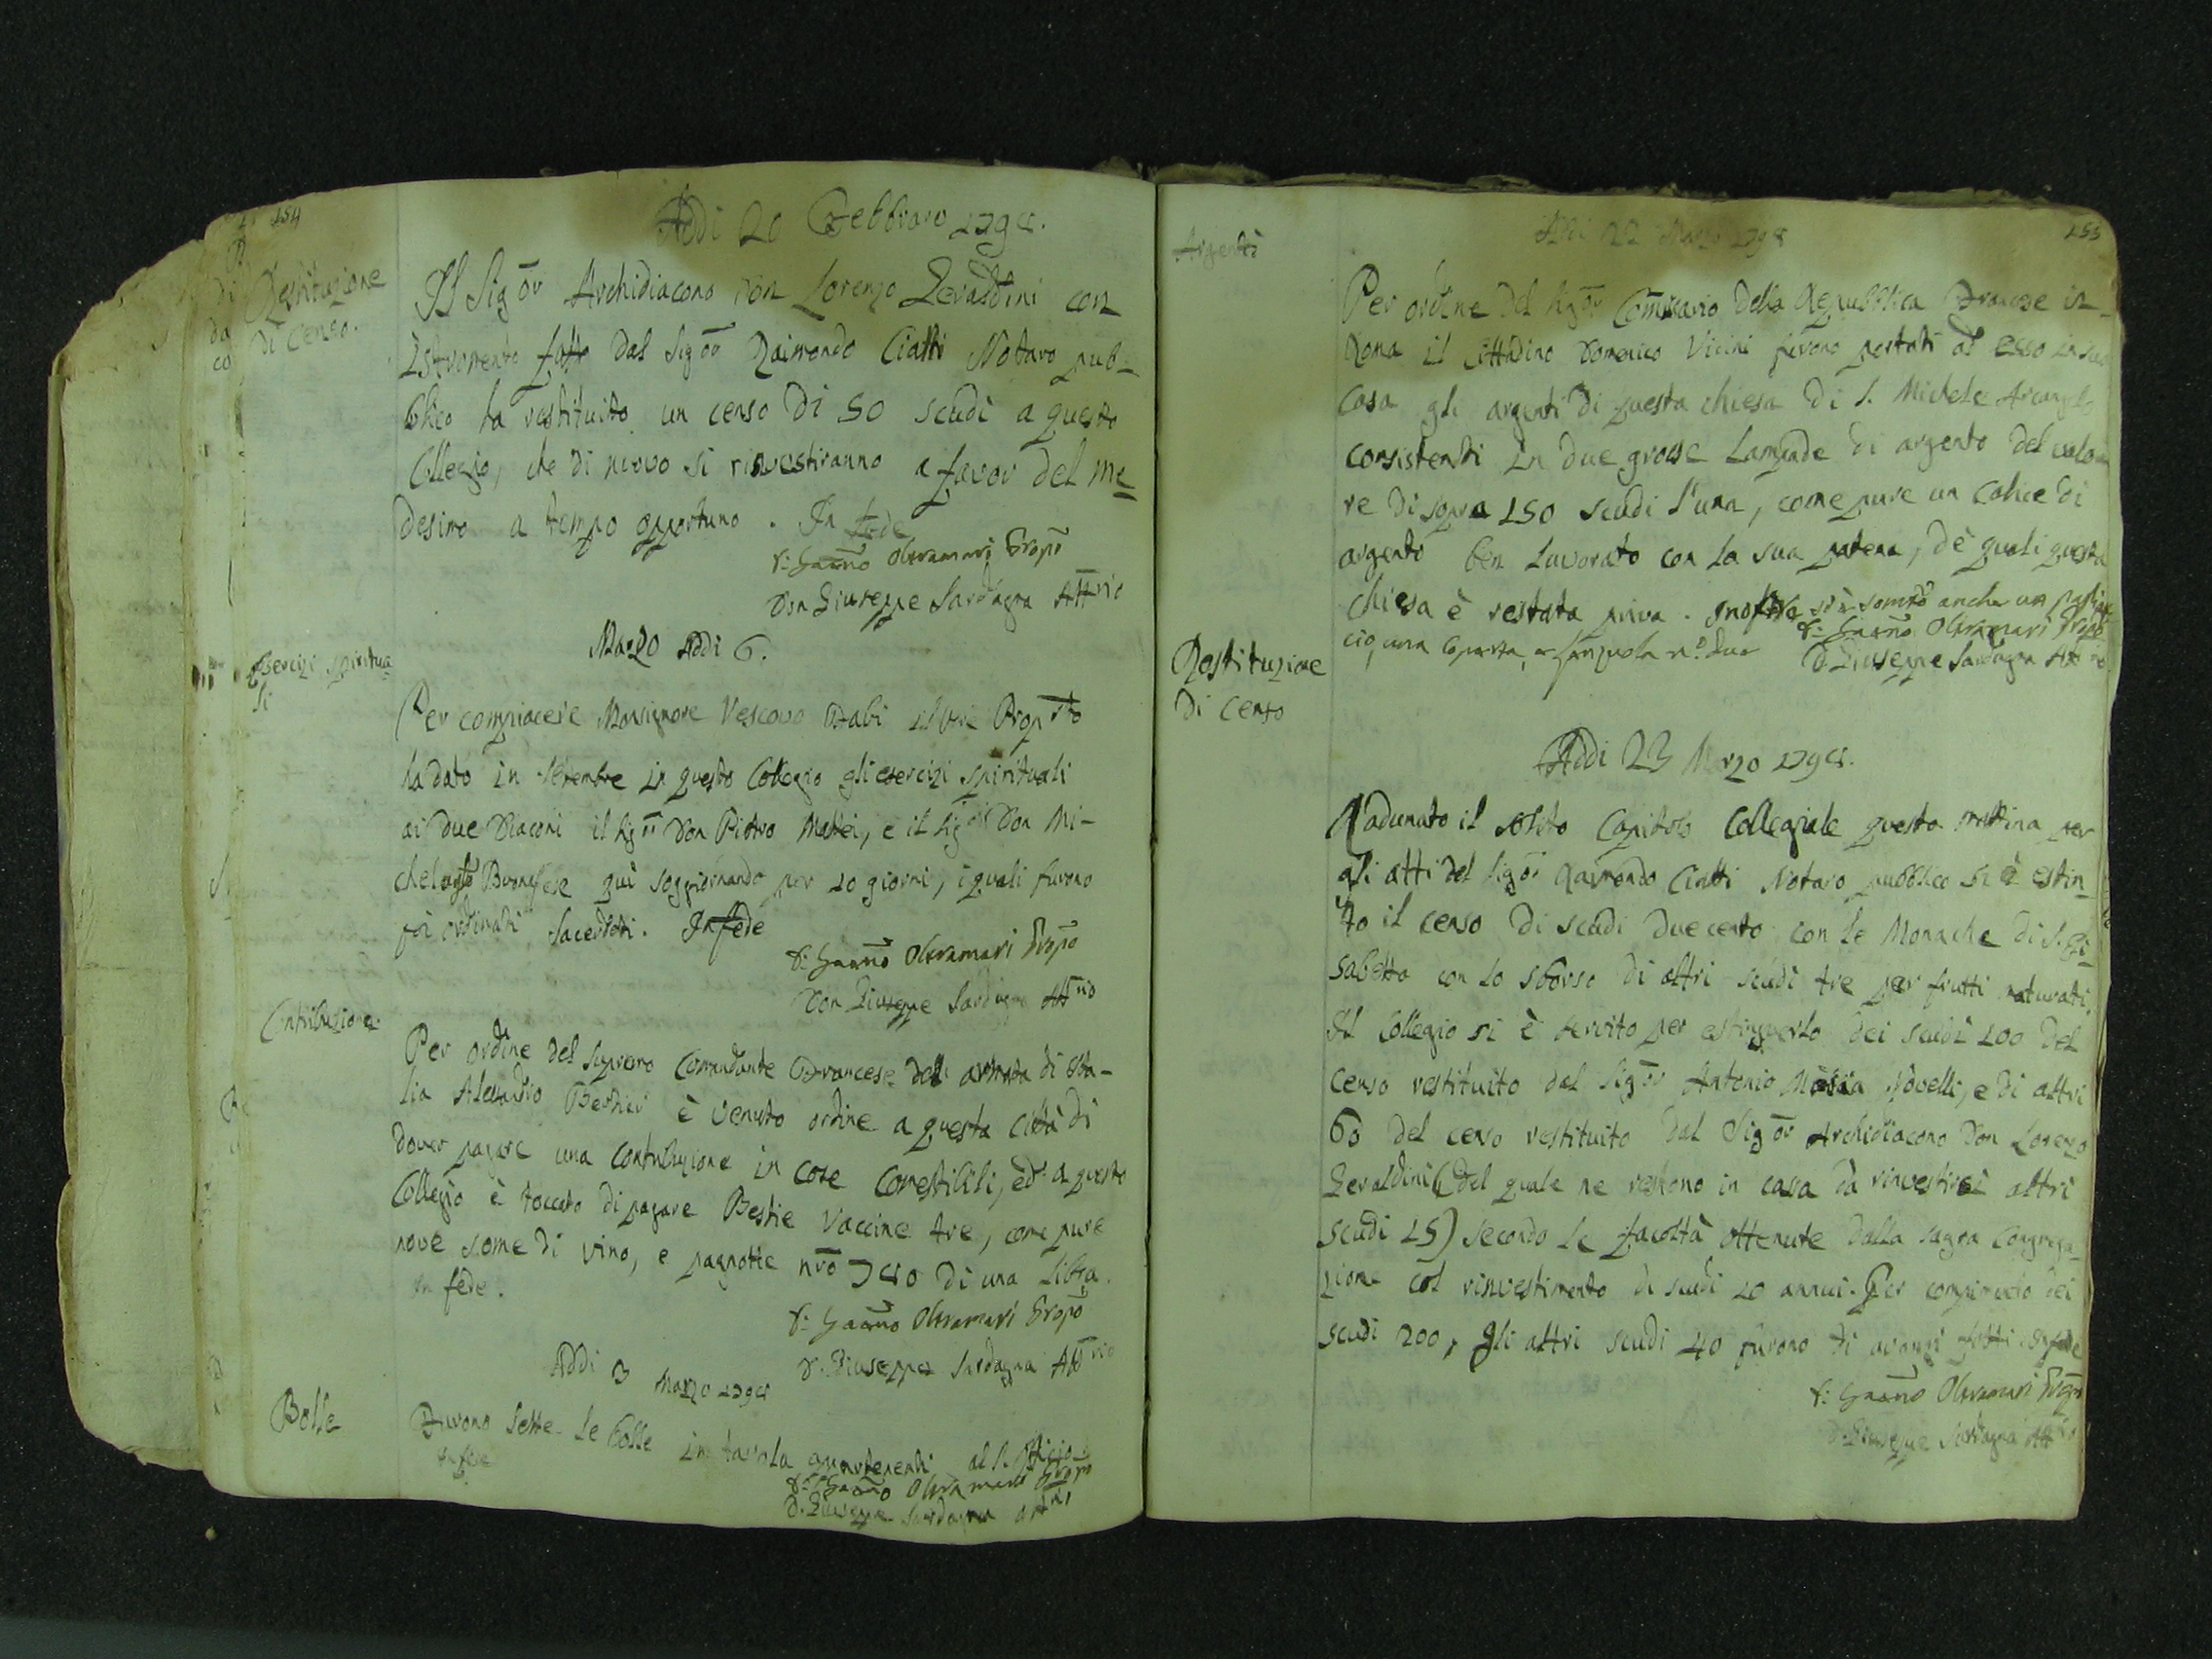 154
Addi 20 Febbraro 1798.
Restituzione
di Censo.
Il Sigor Archidiacono Don Lorenzo Geraldini con
Istromento fatto dal Sigor Raimondo Ciatti Notaro pub-
blico ha restituito un censo di 50 scudi a questo
Collegio, che di nuovo si rinvestiranno a favor del me-
desimo a tempo opportuno. In fede
F: Gaeno Oltramari Propo
Don Giuseppe Sardagna Attrio
Marzo Addi 6.
Esercizi spiritua-
li
Per compiacere Monsignore Vescovo Fabi il Pre Propsto
ha dato in Settembre in questo Collegio gli esercizi spirituali
ai due Diaconi il Sigr Don Pietro Mattei, e il Sigor Don Mi-
chelaglo qui soggiornando per 10 giorni, i quali furono
poi ordinati Sacerdoti. In fede
F: Gaeno Oltramari Propo
Don Giuseppe Sardagna Attrio
Contribuzione
Per ordine del Supremo Comandante Francese dell armata di Ita-
lia Alesandro Berthier è venuto ordine a questa Città di
dover pagare una contribuzione in cose Comestibili, ed a questo
Collegio è toccato di pagare Bestie Vaccine tre, come pure
nove some di vino, e pagnotte nro 780 di una libra.
In fede.
F: Gaeno Oltramari Propo
D. Giuseppe Sardagna Attrio
Addi 3 Marzo 1798
Bolle
Furono lette le bolle in tavola appartenenti al S. Officio.
In fede
F: Gaeno Oltramari Propo
D. Giuseppe Sardagna Attrio
155
Addi 22 Marzo 1798
Argenti
Per ordine del Sigor Comisario della Republica Francese in
Roma il Cittadino Domenico Vicini furono portati ad esso in sua
Casa gli argenti di questa chiesa di S. Michele Arcangelo
consistenti in due grosse Lampade di argento del valo-
re di sopra 150 scudi l'una, come pure un Calice di
argento ben lavorato con la sua patena, de quali questa
chiesa è restata priva. Inoltre si è somto anche un pagliac-
cio, una coperta, e lenzuola no due
F: Gaeno Oltramari Propo
D. Giuseppe Sardagna Attrio
Restituzione
di Censo
Addi 23 Marzo 1798.
Radunato il solito Capitolo Collegiale questa mattina per
gli atti del Sigor Raimondo Ciatti Notaro pubblico si è estin-
to il censo di scudi duecento con le Monache di S. Eli-
sabetta con lo sborso di altri scudi tre per frutti maturati.
Il Collegio si è servito per estinguerlo dei scudi 100 del
Censo restituito dal Sigor Antonio Maria Novelli, e di altri
60 del censo restituito dal Sigor Archidiacono Don Lorenzo
Geraldini (del quale ne restono in casa da rinvestirsi altri
scudi 15) secondo le facoltà ottenute dalla sagra Congrega-
zione col rinvestimento di scudi 10 annui. Per compimento dei
scudi 200, gli altri scudi 40 furono di avanzi fatti. In fede
F: Gaeno Oltramari Propo
D. Giuseppe Sardagna Attrio